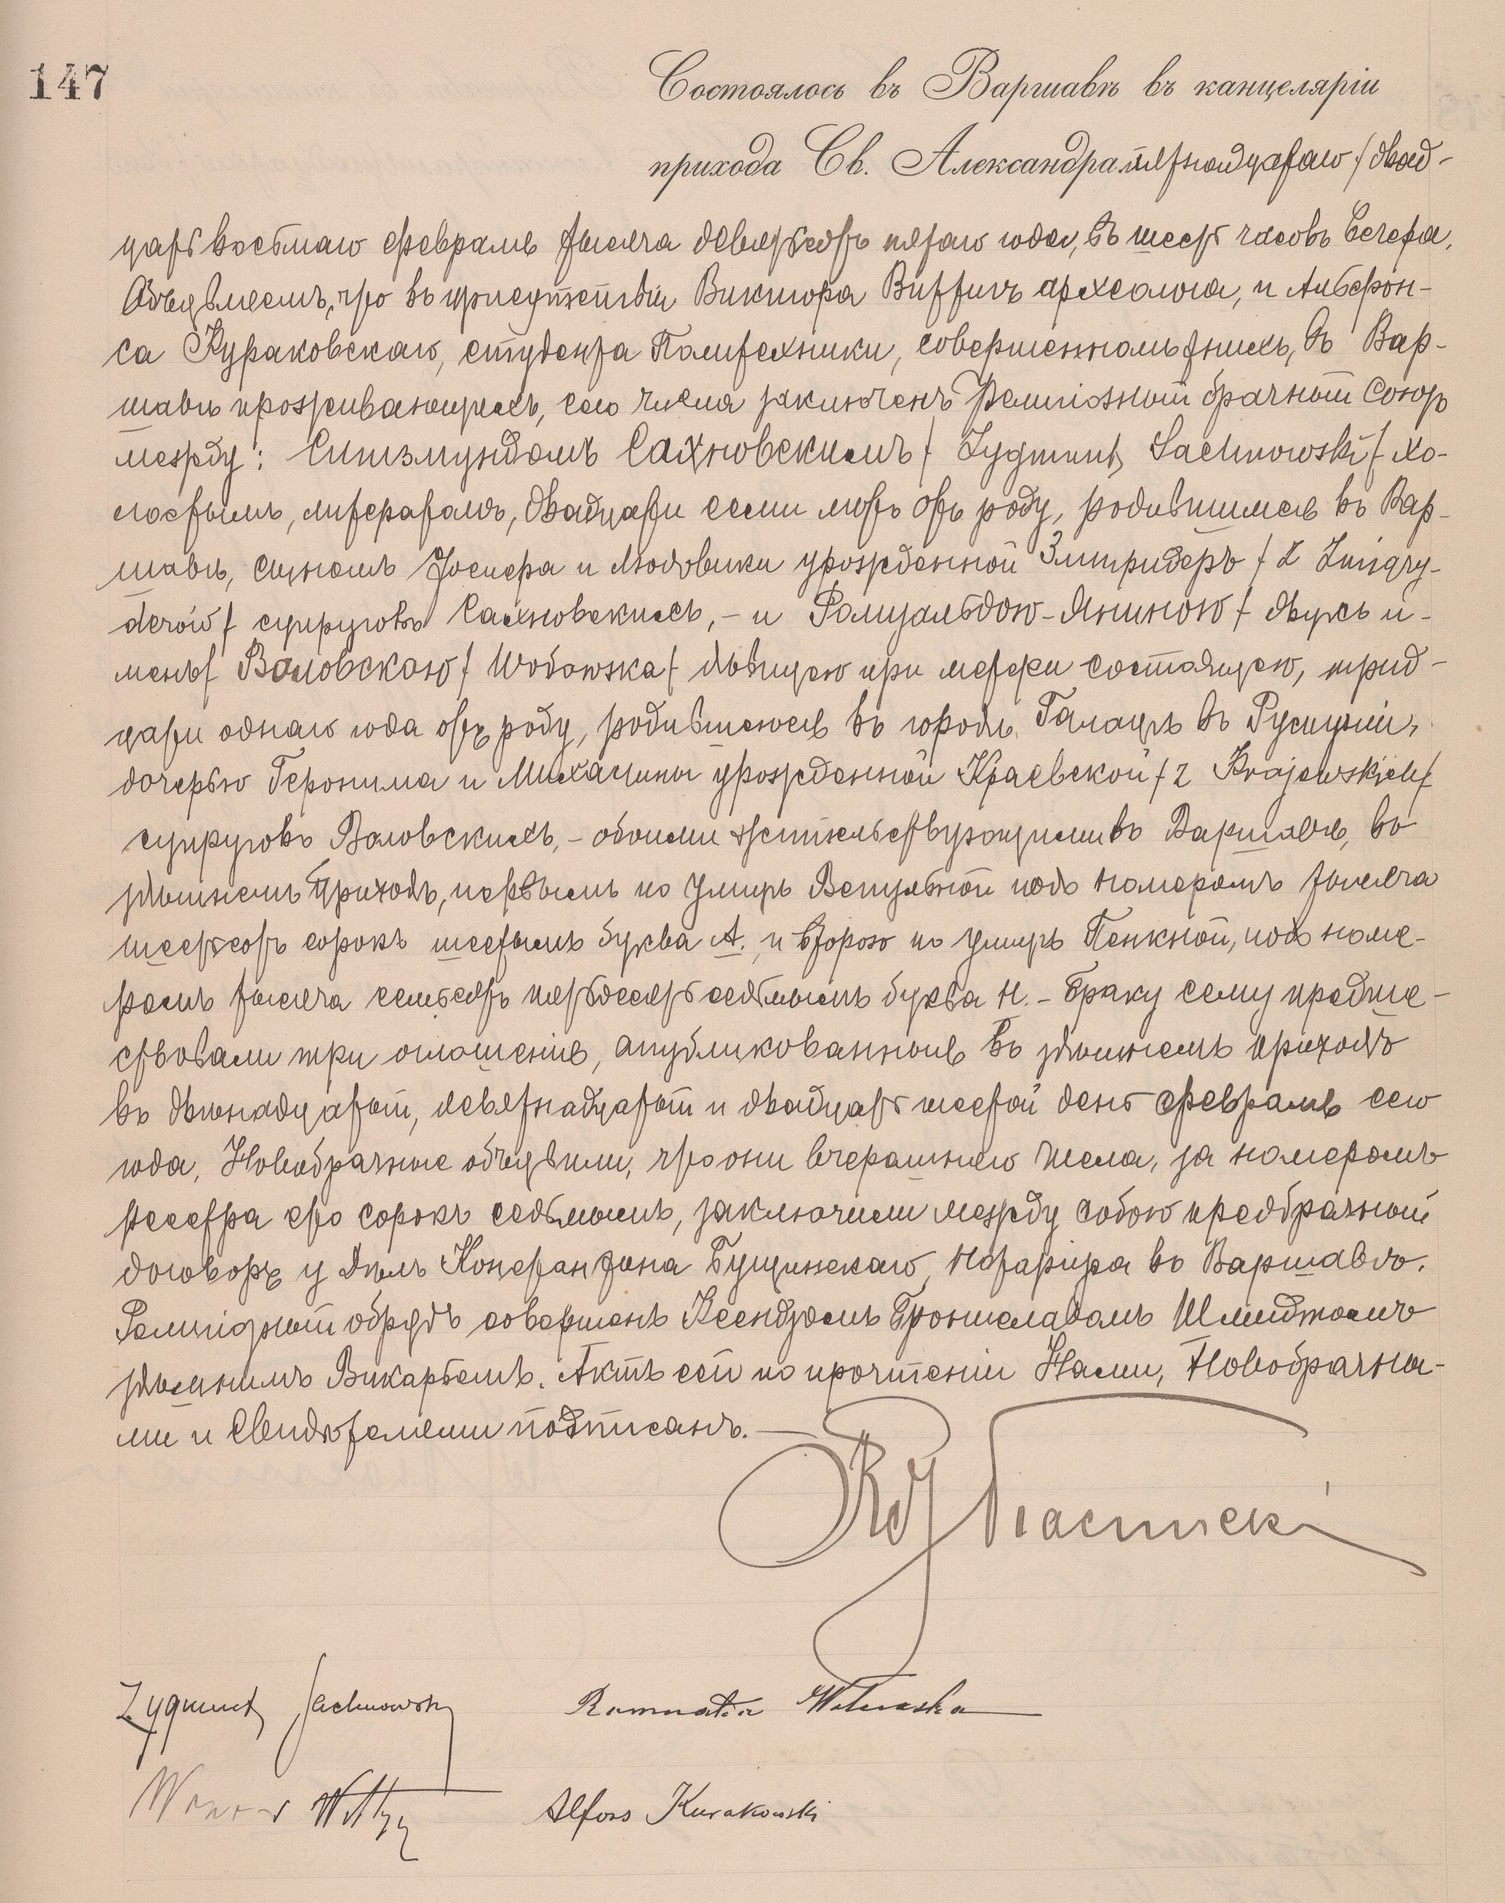 147
Состоялось въ Варшавѣ въ канцеляріи
прихода Св. Александра пятнадцатаго / двад-
цать восьмаго февраля тысяча девятьсотъ пятаго года, въ шесть часовъ вечера,
Объявляемъ, что въ присутствіи Виктора Виттигъ археолога, и Альфон-
са Кураковскаго, студента Политехники, совершеннолѣтнихъ, въ Вар-
шавѣ проживающихъ, сего числа заключенъ Религіозный брачный союзъ
между: Сигизмундомъ Сахновскимъ / Zygmunt Sachnowski / хо-
лостымъ, литератомъ, двадцати семи лѣтъ отъ роду, родившимся въ Вар-
шавѣ, сыномъ Іосифа и Людовики урожденной Змигридеръ / z Zmigry-
derów / супруговъ Сахновскихъ, - и Ромуальдою-Яниною / двухъ и-
менъ / Воловскою / Wołowska / дѣвицею при матери состоящею, трид-
цати одного года отъ роду, родившеюся въ городѣ Галацъ въ Румыніи,
дочерью Геронима и Михалины урожденной Краевской / z Krajewskich /
супруговъ Воловскихъ, - обоими жительствующими въ Варшавѣ, въ
здѣшнемъ приходѣ, первымъ по улицѣ Вспульной подъ номеромъ тысяча
шестьсотъ сорокъ шестымъ буква А. и второю по улицѣ Пенкной, подъ номе-
ромъ тысяча семьсотъ пятьдесятъ седьмымъ буква Н. - Браку сему предше-
ствовали три оглашенія, опубликованныя въ здѣшнемъ приходѣ
въ двѣнадцатый, девятнадцатый и двадцать шестой день февраля сего
года, Новобрачные объявили, что они вчерашняго числа, за номеромъ
реестра сто сорокъ седьмымъ, заключили между собою предбрачный
договоръ у дѣлъ Константина Бущинскаго, Нотаріуса въ Варшавѣ.
Религіозный обрядъ совершенъ Ксендзомъ Брониславомъ Шмидтомъ
здѣшнимъ Викаріемъ. Актъ сей по прочтеніи Нами, Новобрачны-
ми и свидѣтелями подписанъ. —
Zygmunt Sachnowski Romualda Wołowska
Wittyg Alfons Kurakowski